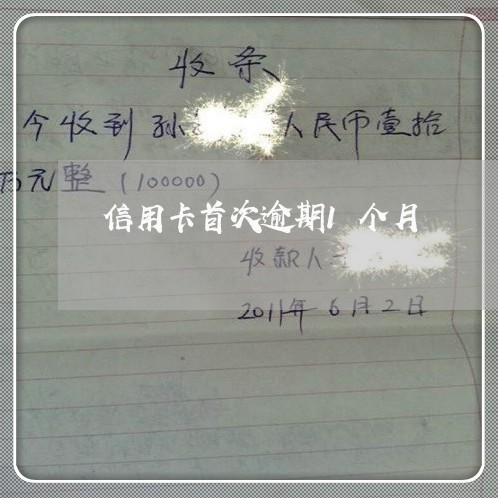 收条
今收到孙 人民币壹拾
万元整（100000）
信用卡首次逾期1个月
收款人
2011年6月2日